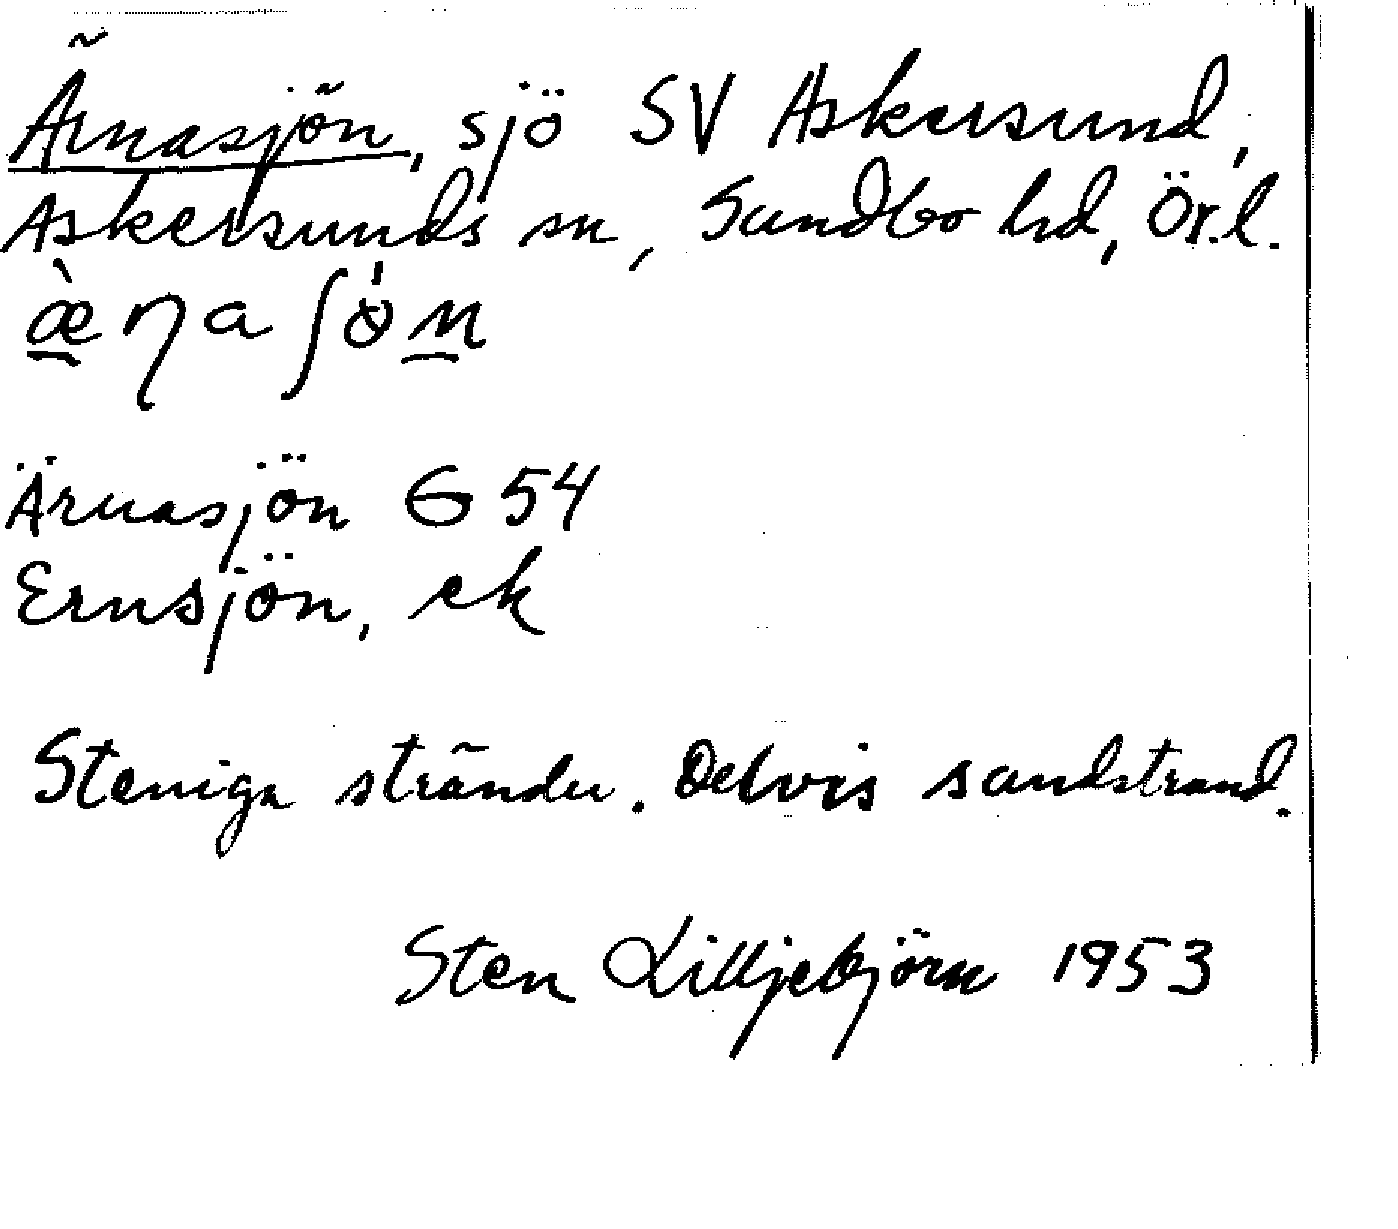 Ärnasjön, sjö SV Askersund,
Askersunds sn, Sundbo hd, Ör.l.
æ̀ɳaʃö́n
Ärnasjön G 54
Ernsjön, ek
Steniga stränder. Delvis sandstrand.
Sten Lilljebjörn 1953